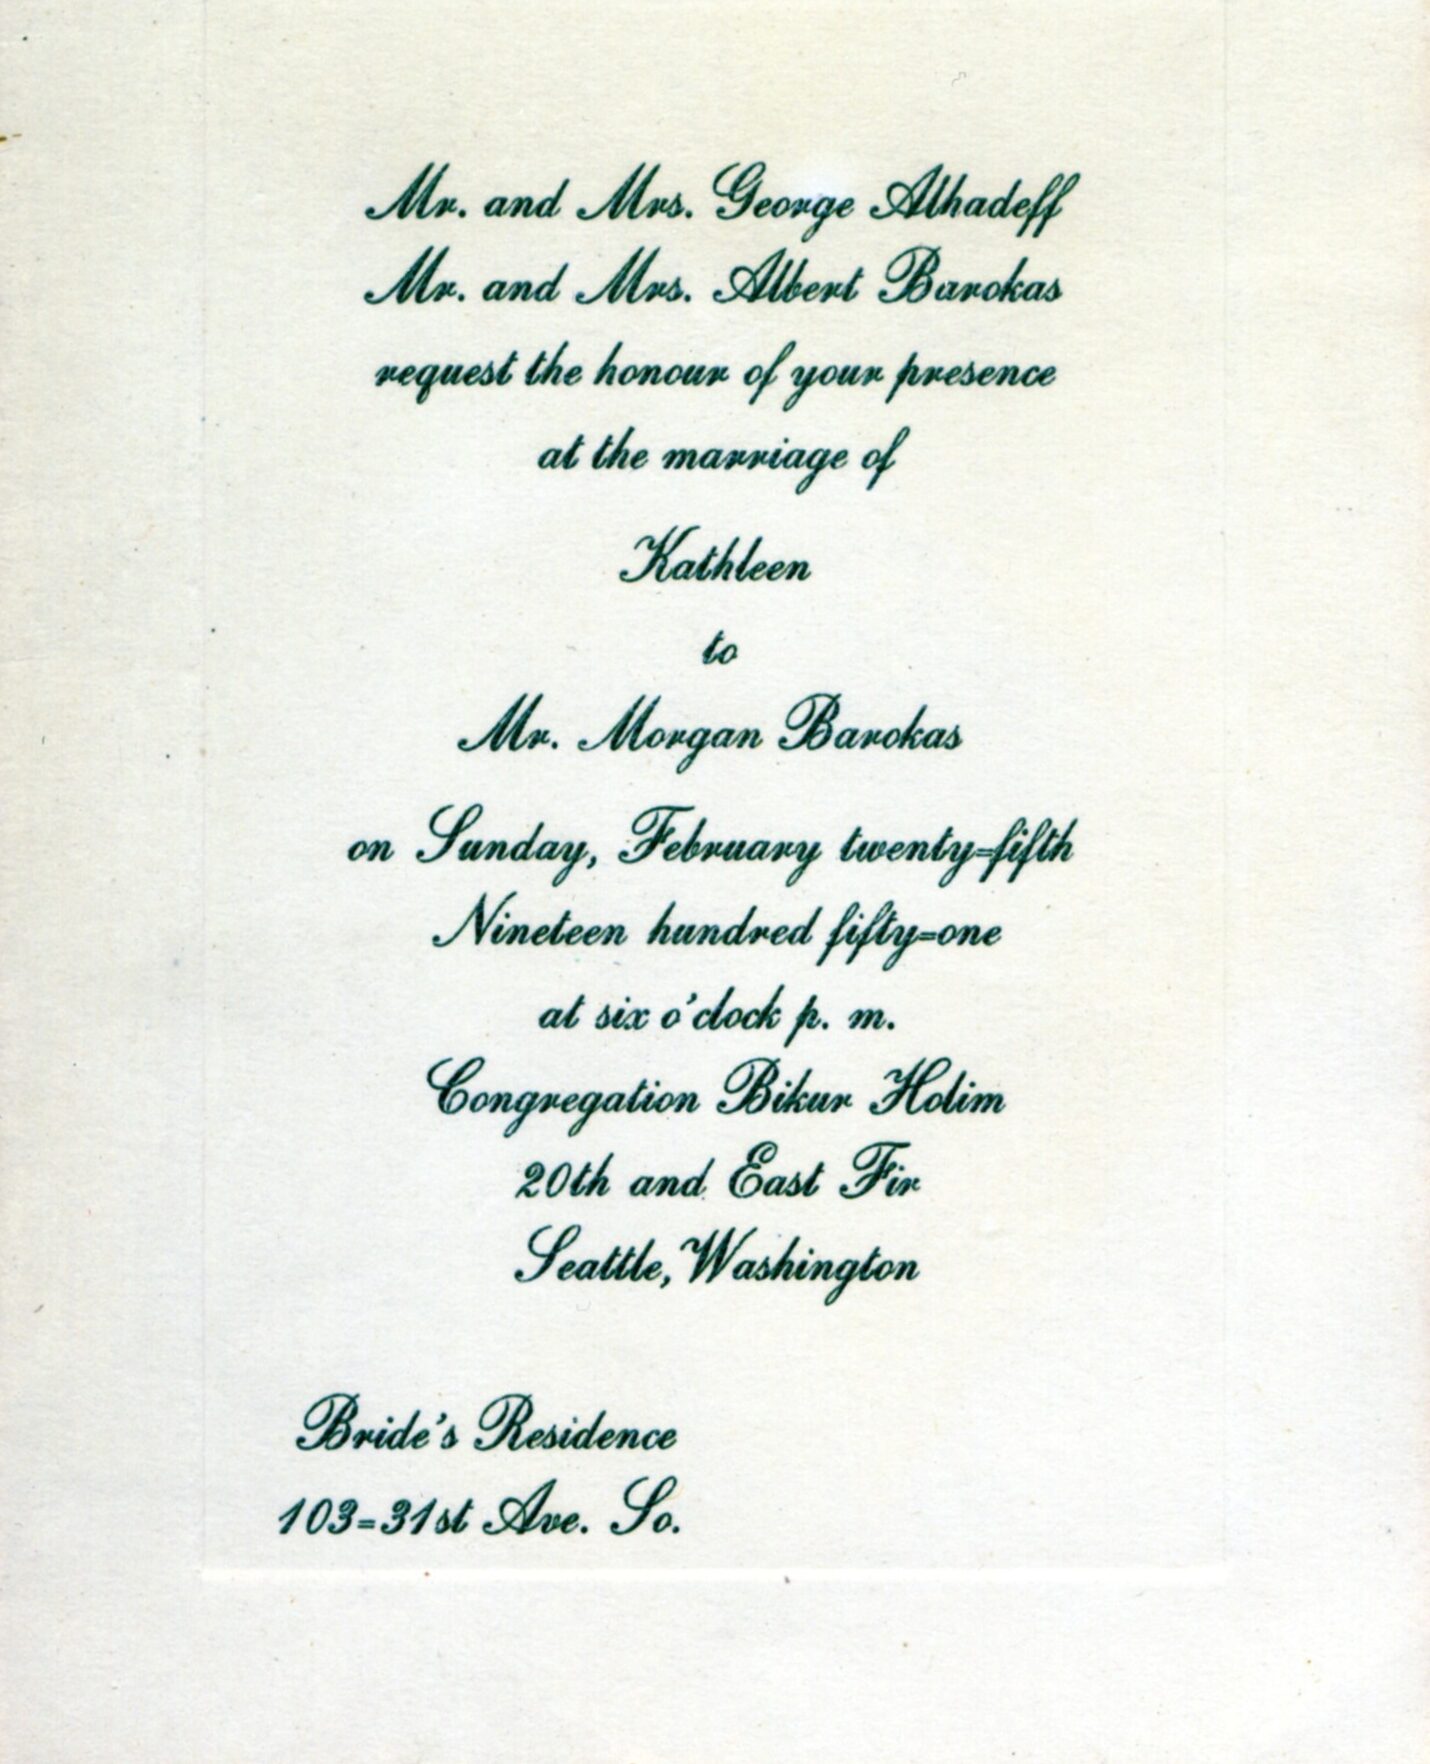 Mr. and Mrs. George Alhadeff
Mr. and Mrs. Albert Barokas
request the honour of your presence
at the marriage of
Kathleen
to
Mr. Morgan Barokas
on Sunday, February twenty=fifth
Nineteen hundred fifty=one
at six o'clock p. m.
Congregation Bikur Holim
20th and East Fir
Seattle, Washington
Bride's Residence
103=31st Ave. So.